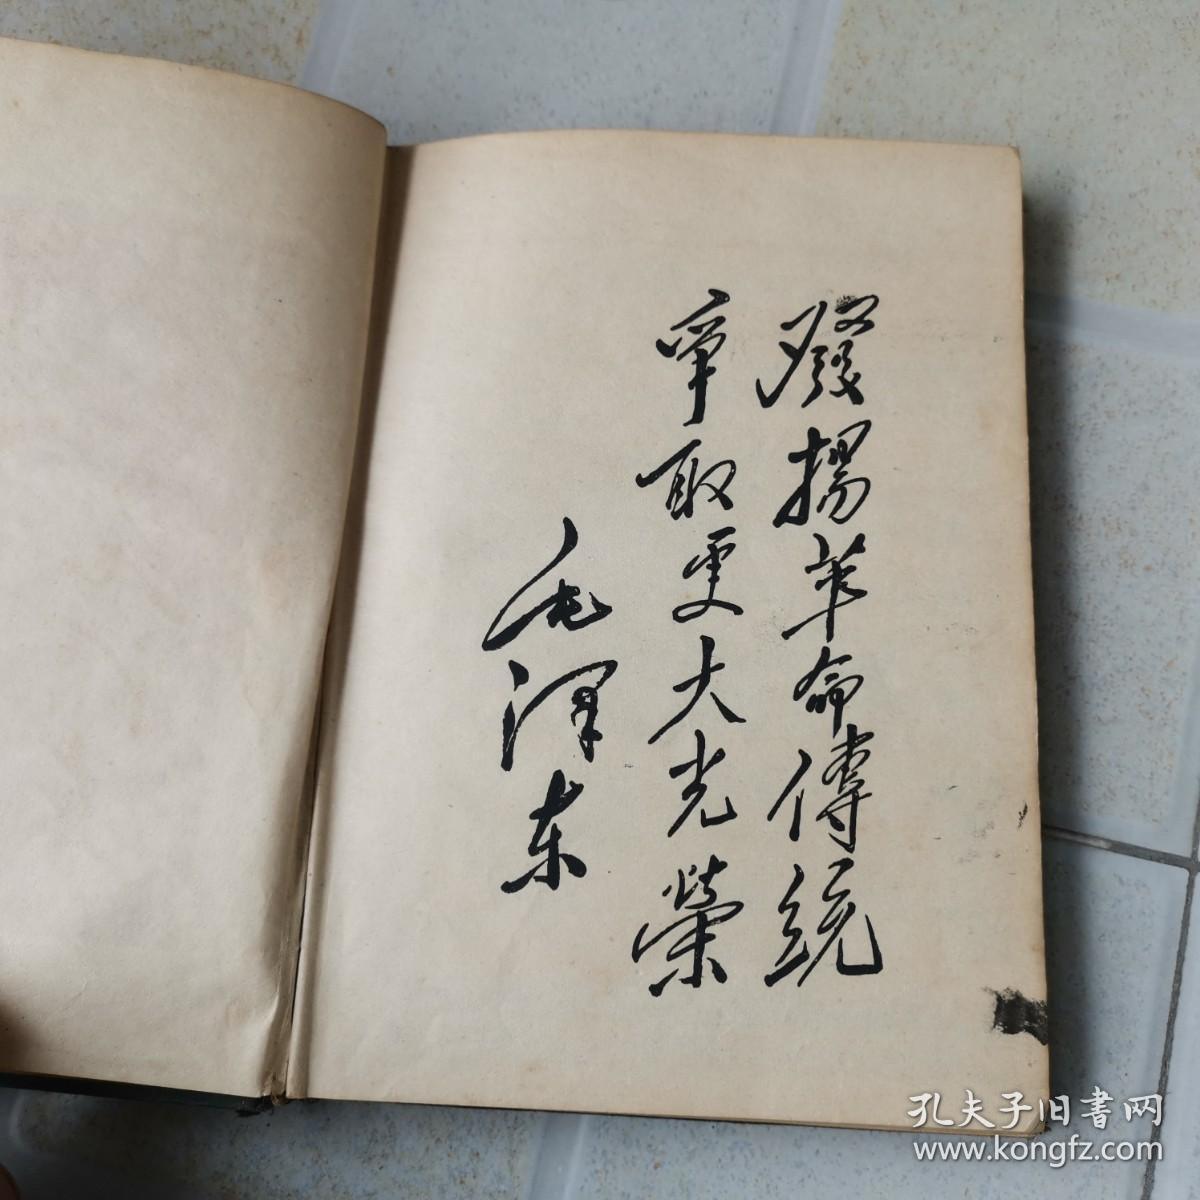 發揚革命傳統
爭取更大光榮
毛澤东
孔夫子旧書网
www.kongfz.com